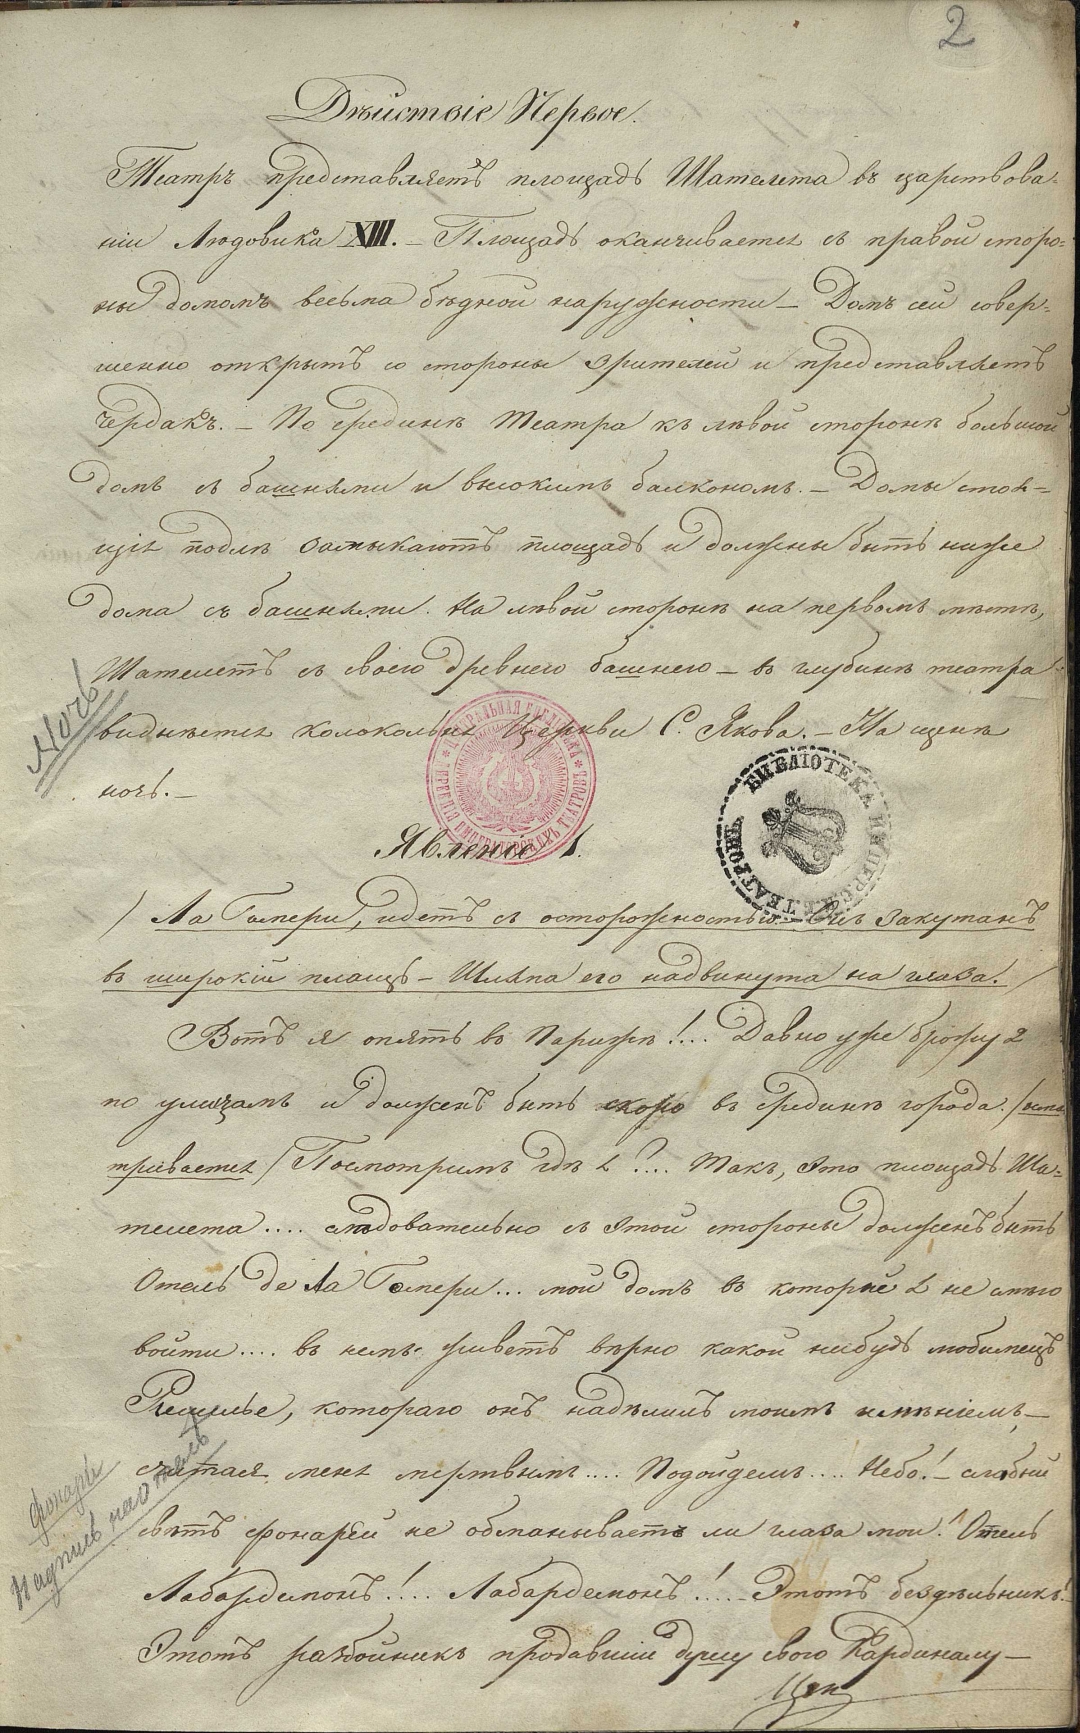 2
Дѣйствіе Первое.
Театръ представляетъ площадь Шателета въ царствова-
ніи Людовика XIII. — Площадь оканчивается съ правой сторо=
ны домомъ весьма бѣдной наружности — Домъ сей совер-
шенно открытъ со стороны зрителей и представляетъ
чердакъ. — По срединѣ Театра къ лѣвой сторонѣ большой
домъ съ башнями и высокимъ балкономъ. — Домы стоя=
щіе подлѣ замыкаютъ площадь и должны быть ниже
дома съ башнями. На лѣвой сторонѣ на первомъ мѣстѣ,
Шателетъ съ своею древнею башнею — въ глубинѣ театра
Ночь
виднѣется колокольня Церкви С. Якова. — На сценѣ
ночь. —
ЦЕНТРАЛЬНАЯ БИБЛІОТЕКА ИМПЕРАТОРСКИХЪ ТЕАТРОВЪ
БИБЛІОТЕКА ИМПЕРСК. ТЕАТРОВЪ
Явленіе 1.
/ Ла Гомери, идетъ съ осторожностью — Онъ закутанъ
въ широкій плащъ — Шляпа его надвинута на глаза. /
Вотъ я опять въ Парижѣ!... Давно уже брожу я
по улицамъ и долженъ быть скоро въ срединѣ города. /
триваетъ / Посмотримъ гдѣ я?... Такъ, это площадь Ша-
телета.... слѣдовательно съ этой стороны долженъ быть
Отель де Ла Гомери... мой домъ въ который я не смѣю
войти.... въ немъ живетъ вѣрно какой нибудь любимецъ
Ришелье, котораго онъ надѣлилъ моимъ имѣніемъ, —
считая меня мертвымъ.... Подойдемъ.... Небо! — слабый
фонарь
Надпись на отель
свѣтъ фонарей не обманываетъ ли глаза мои! Отель
Лабардемонъ!.... Лабардемонъ!... — Этотъ бездѣльникъ!
Этотъ разбойникъ продавшій душу свою Кардиналу —